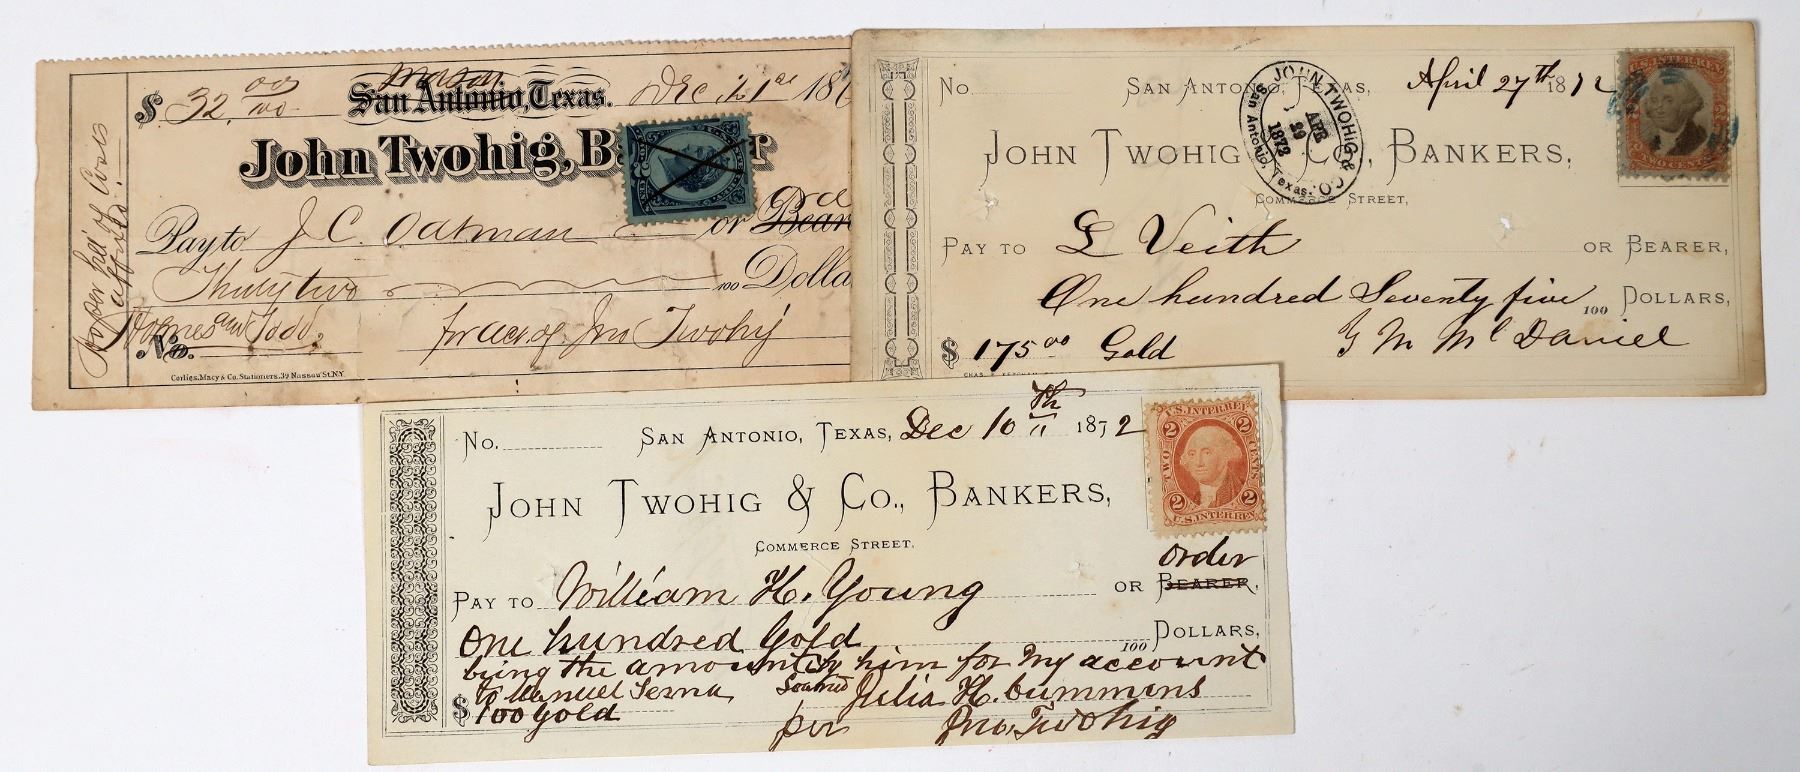 $ 32.00/100
Mason
San Antonio, Texas. Dec 21st 18
John Twohig, B r
Pay to J C. Oatman or Bear
Ord
Thirty two 100 Dolla
for acct of Jno Twohig
No.
Corlies, Macy & Co. Stationers, 39 Nassau St. N.Y.
No. San Antonio, Texas, April 27th 1872
JOHN TWOHIG & CO.
1873
San Antonio, Texas.
U.S. INTER. REV.
TWO CENTS
John Twohig & Co., Bankers,
Commerce Street,
Pay to L Veith or Bearer,
One hundred Seventy five 100 Dollars,
$ 175.00 Gold G M McDaniel
No. San Antonio, Texas, Dec 10th 1872
U.S. INTER. REV.
2 2
TWO CENTS
2 2
U.S. INTER. REV.
John Twohig & Co., Bankers,
Commerce Street,
order
Pay to William H. Young or Bearer,
One hundred Gold 100 Dollars,
being the amount by him for my account
to Manuel Serna loaned Julia H. Cummins
$ 100 Gold per Jno. Twohig